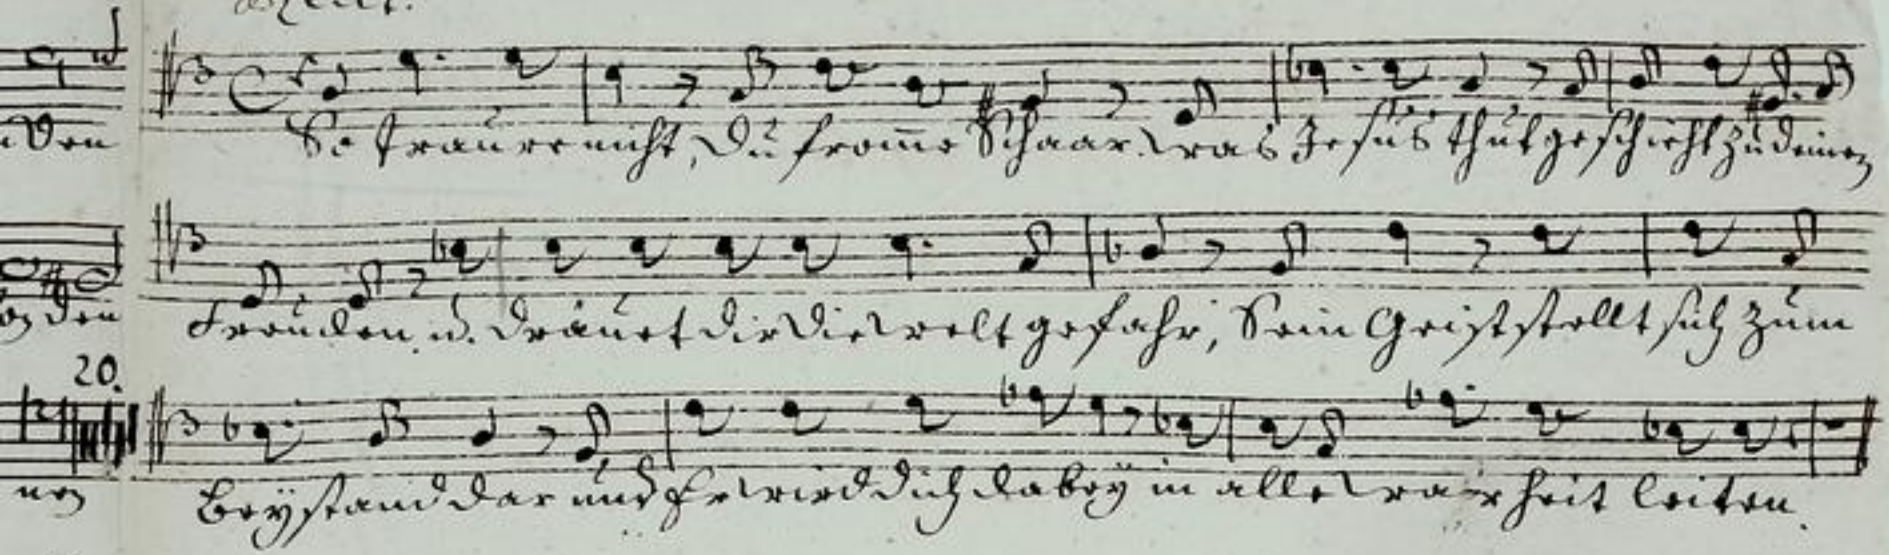 So traure nicht, du from̄e Schaar. was Jesus thut geschieht zu deinen
20.
Freuden. u. dräuet dir die welt gefahr, Sein Geist stellt sich zum
Beystand dar und Er wird dich dabey in alle warheit leiten.